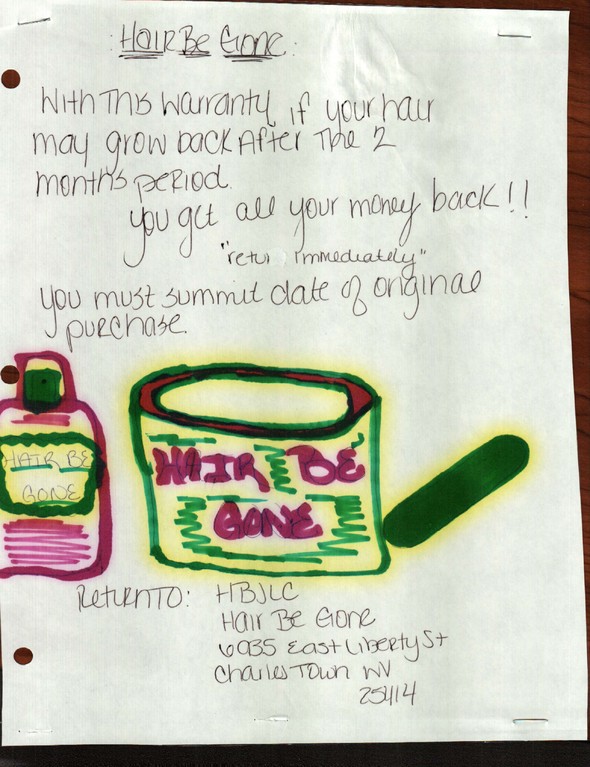 : Hair Be Gone :
With This Warranty, if your hair
may grow back After The 2
months period.
you get all your money back!!
immediately"
you must summit date of original
purchase.
HAIR BE
GONE
HAIR BE
GONE
Return To: HBJLC
Hair Be Gone
6935 East Liberty St
Charles Town WV
25414